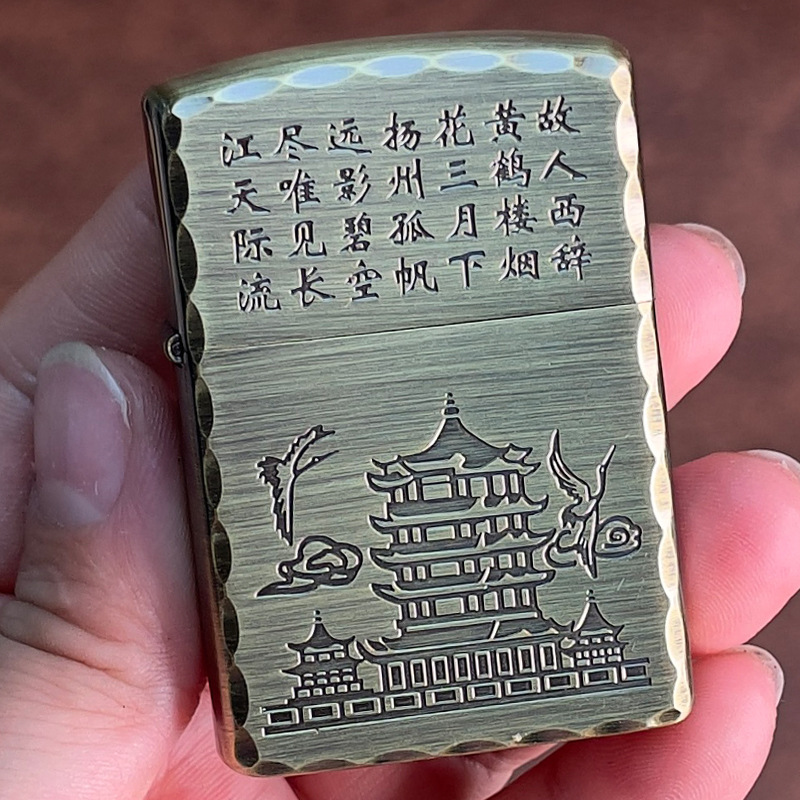 故人西辞
黄鹤楼烟
花三月下
扬州孤帆
远影碧空
尽唯见长
江天际流